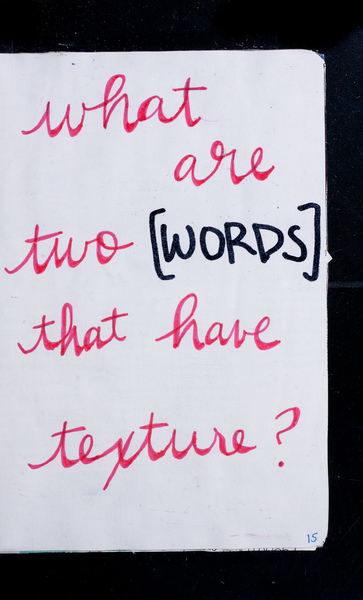 what
are
two [WORDS]
that have
texture?
15